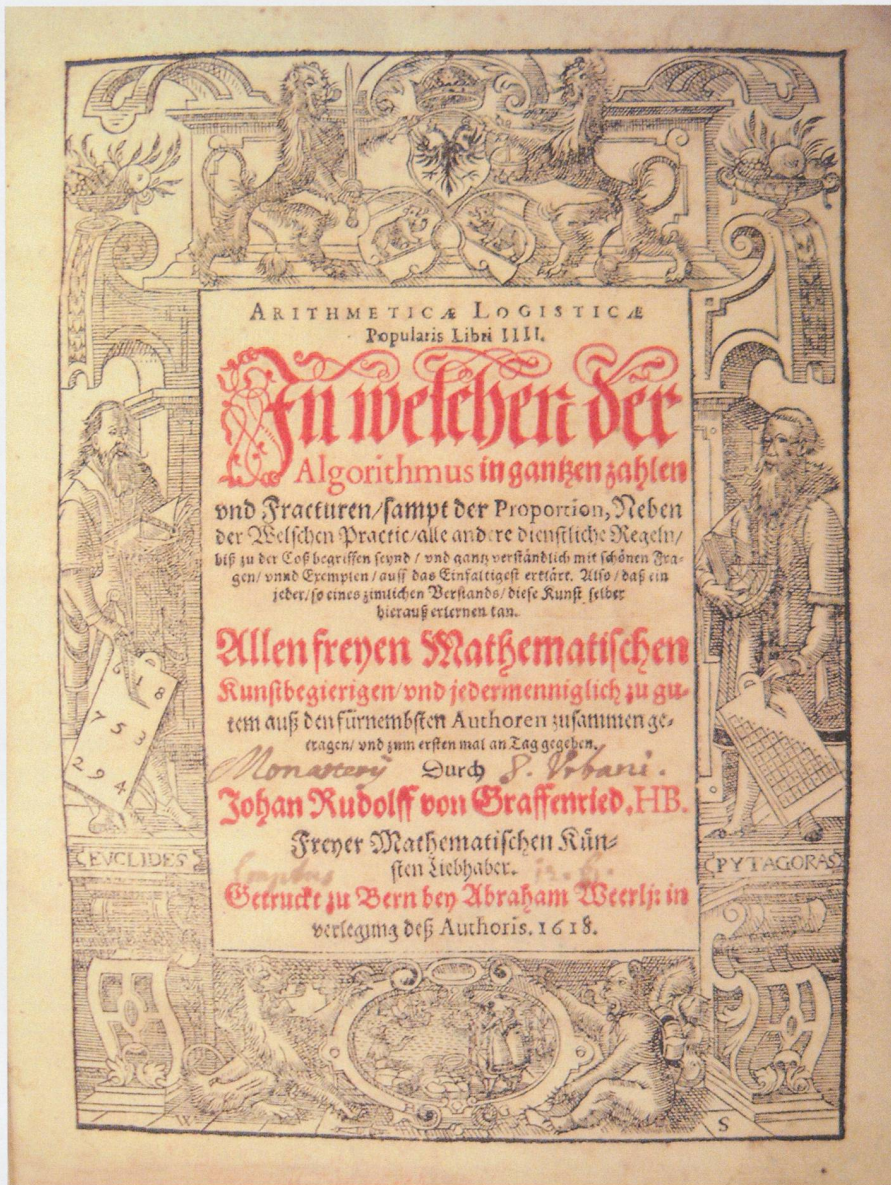 ARITHMETICÆ LOGISTICÆ
Popularis Libri IIII.
In welchen der
Algorithmus in gantzen zahlen
vnd Fracturen/sampt der Proportion, Neben
der Welschen Practic/alle andere dienstliche Regeln/
biß zu der Coß begriffen seynd/ vnd gantz verständlich mit schönen Fra-
gen/ vnnd Exemplen/ auff das Einfaltigest erklärt. Also/ daß ein
jeder/ so eines zimlichen Verstands/ diese Kunst selber
hierauß erlernen kan.
Allen freyen Mathematischen
Kunstbegierigen/vnd jedermenniglich zu gu-
tem auß den fürnembsten Authoren zusammen ge-
tragen/ vnd zum ersten mal an Tag gegeben.
Monasterij Durch S. Vrbani.
Johan Rudolff von Graffenried, HB.
Freyer Mathematischen Kün-
sten Liebhaber.
Getruckt zu Bern bey Abraham Weerlj: in
verlegung deß Authoris. 1618.
6 1 8
7 5 3
2 9 4
EVCLIDES
PYTAGORAS
W
S